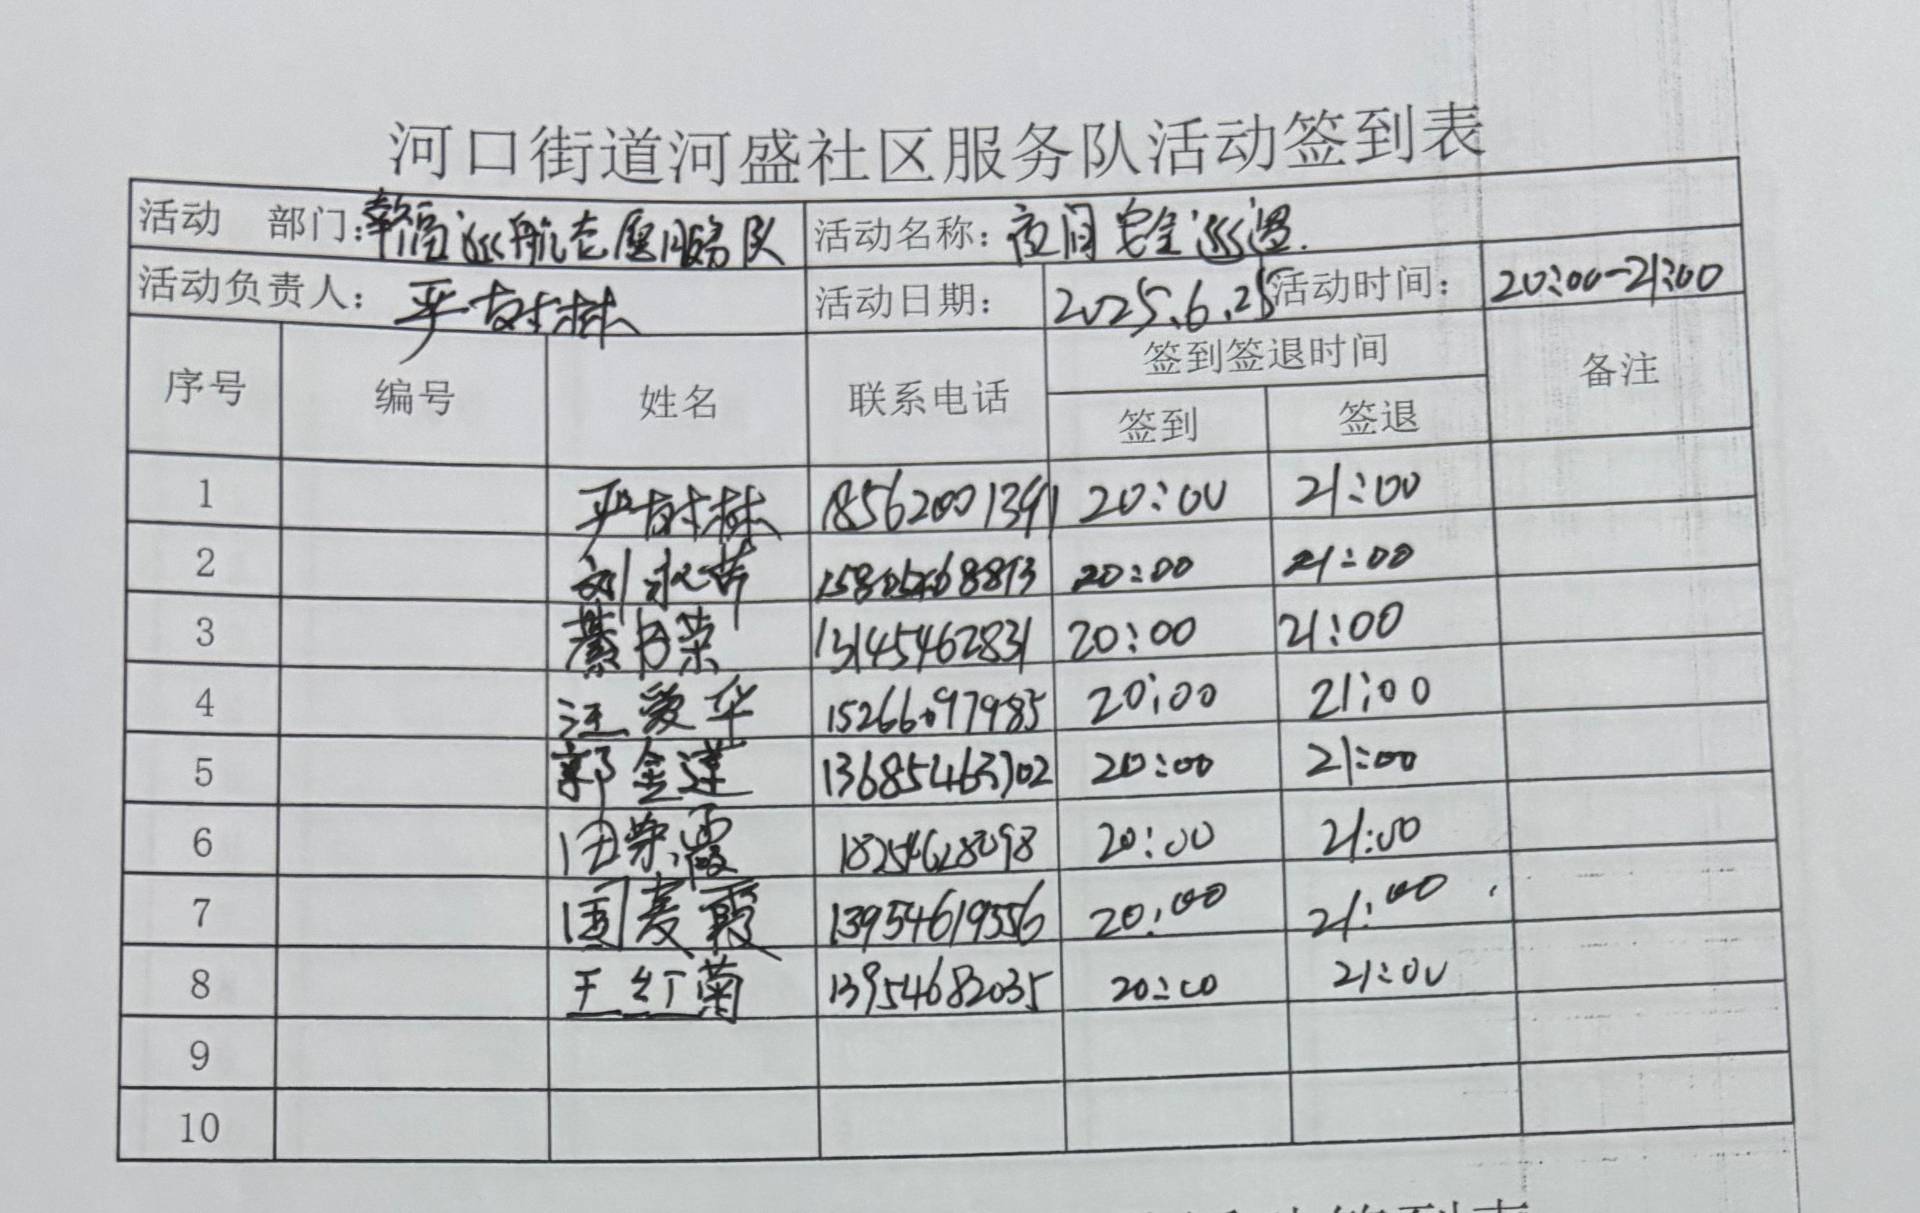 河口街道河盛社区服务队活动签到表
活动 部门：幸福巡航志愿服务队 活动名称：夜间安全巡逻.
活动负责人：严树林 活动日期：2025.6.25 活动时间：20:00-21:00
序号 编号 姓名 联系电话 签到签退时间 备注
签到 签退
1 严树林 18562001391 20:00 21:00
2 20:00 21:00
3 綦书荣 13145462831 20:00 21:00
4 汪爱华 15266097985 20:00 21:00
5 郭金莲 13685463702 20:00 21:00
6 田荣霞 18254628098 20:00 21:00
7 国爱霞 13954619556 20:00 21:00
8 王红菊 13954682035 20:00 21:00
9
10
签到表